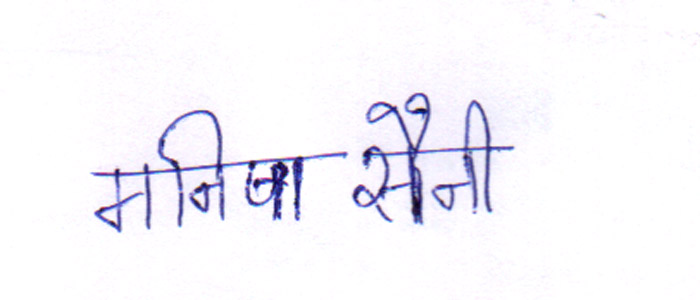 मनिषा सैनी